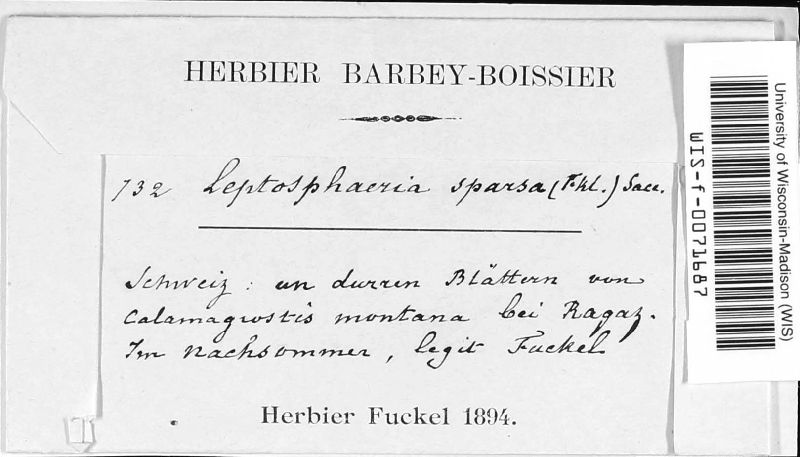 HERBIER BARBEY-BOISSIER
732 Leptosphaeria sparsa (Fkl.) Sacc.
Schweiz: an durren Blättern von
Calamagrostis montana bei Ragaz.
Im Nachsommer, legit Fuckel
Herbier Fuckel 1894.
University of Wisconsin-Madison (WIS)
WIS-f-0071687